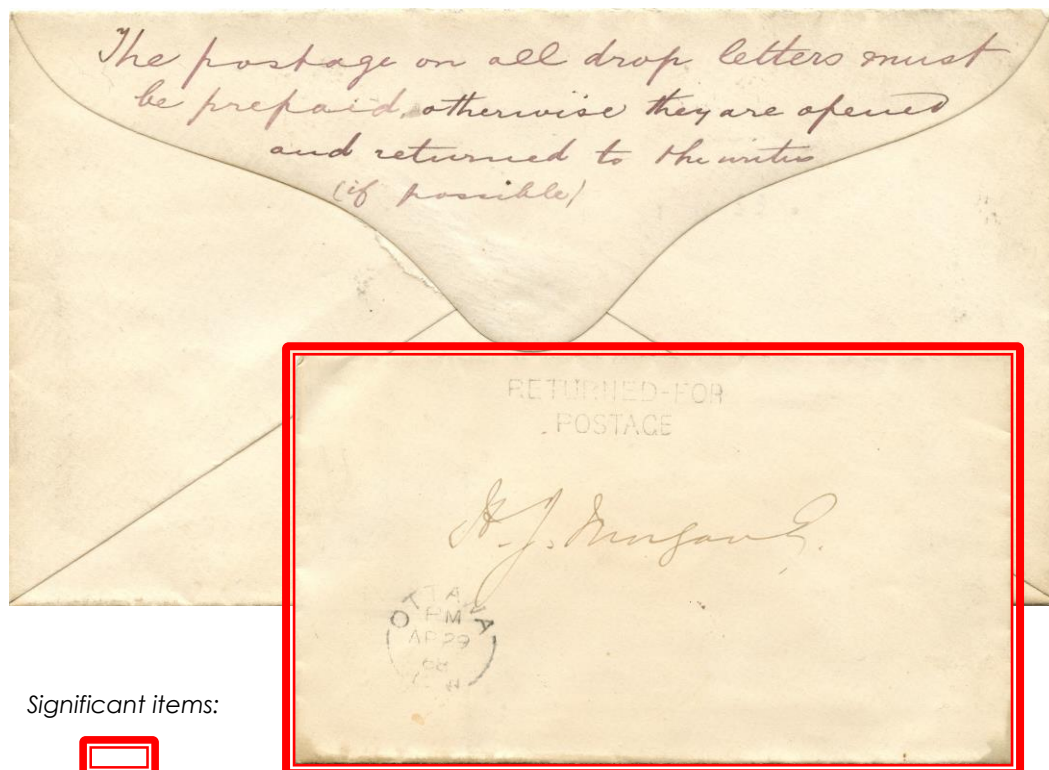 The postage on all drop letters must
be prepaid, otherwise they are opened
and returned to the writer
(if possible)
RETURNED-FOR
POSTAGE
H. J. Morgan
OTTAWA
PM
AP 29
68
Significant items: